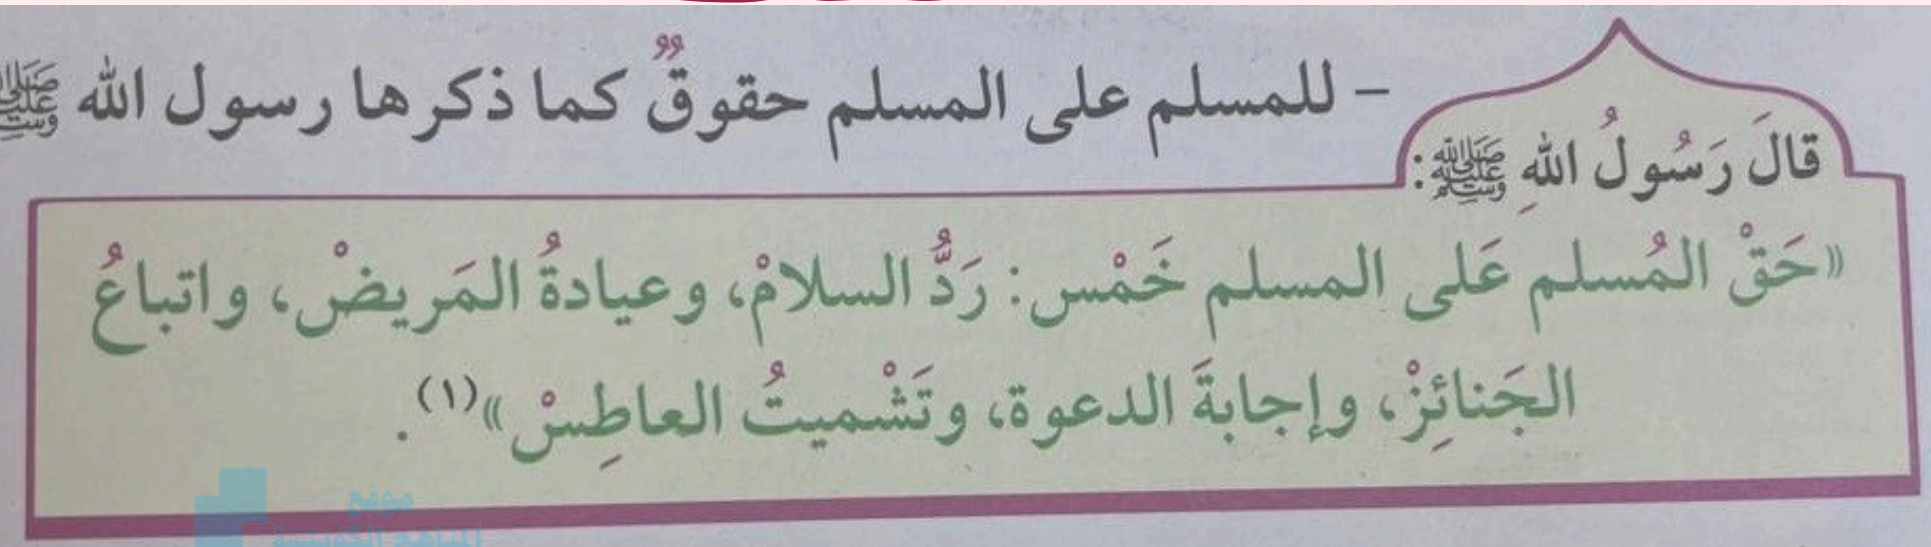 - للمسلم على المسلم حقوقٌ كما ذكرها رسول الله ﷺ
قالَ رَسُولُ اللهِ ﷺ:
«حَقْ المُسلم عَلى المسلم خَمْس: رَدُّ السلامْ، وعيادةُ المَريضْ، واتباعُ
الجَنائِزْ، وإجابةَ الدعوة، وتَشْميتُ العاطِسْ»(١).
موقع
المناهج الكويتية